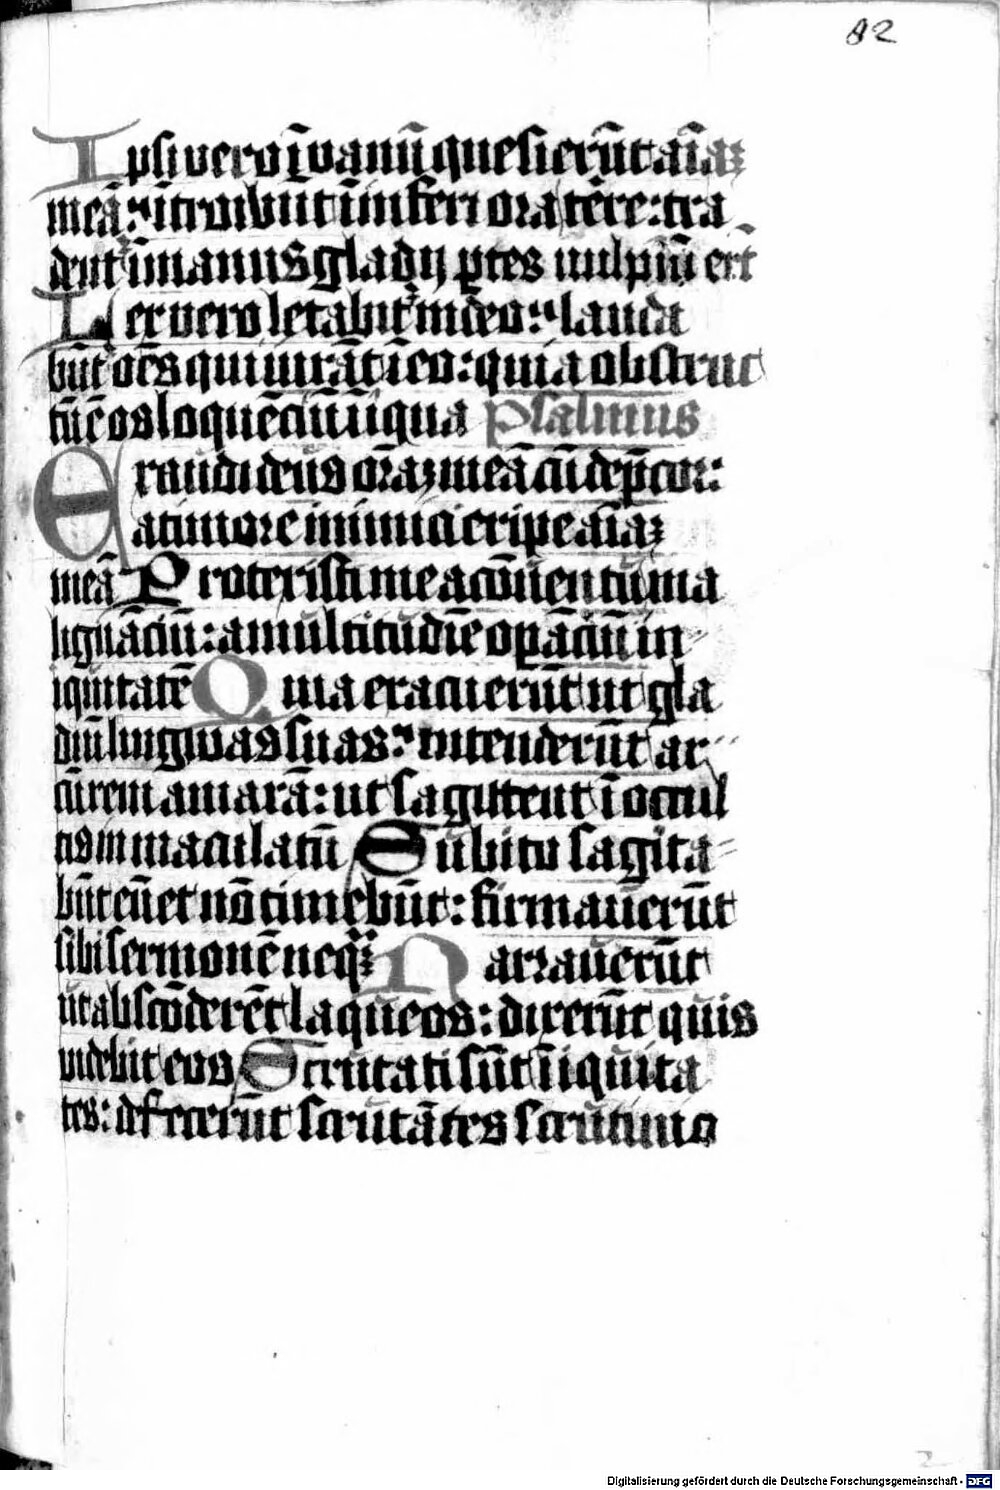 82
Ipsi vero ī vanū quesierūt aīaꝫ
meā: ītroibūt ī inferiora tēre: tra
dent᷑ ī manus gladij ꝑtes vulpiū erūt
Rex vero letabit᷑ in deo: lauda
būt᷑ oēs qui iurāt ī eo: quia obstruc
tū ē os loquēciū iniqua Psalmus
Exaudi deus orōaꝫ meā cū dep̄cor:
a timore inimici eripe aīaꝫ
meā Protexisti me a cōuentu ma
lignāciū: a multitudīe opāciū in
iquitatē Quia exacuerūt ut gla
diū lingwas suas: intenderūt ar
cū rem amarā: ut sagittent ī occul
tis immaculatū Subito sagita
būt eū et nō timebūt: firmauerūt
sibi sermonē neqꝫ Narrauerūt
ut absconderēt laqueos: dixerūt quis
videbit eos Scrutati sūt īiquita
tes: defecerūt scrutātes scrutinio
Digitalisierung gefördert durch die Deutsche Forschungsgemeinschaft - DFG